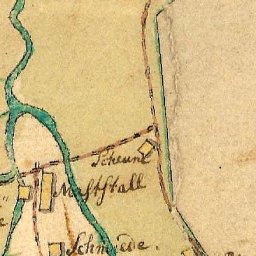 Scheune
Maststall
Schmiede.